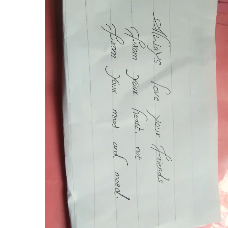 Always love your friends
From your heart not
From your mood and need.